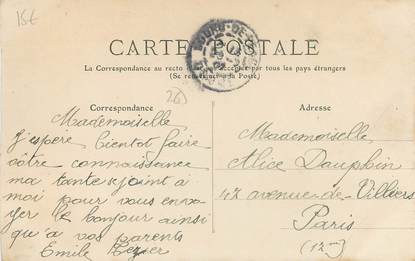 15€
CARTE POSTALE
La Correspondance au recto n'est pas acceptée par tous les pays étrangers
(Se renseigner à la Poste)
BOURG-DE
Correspondance
26
Mademoiselle
J'espère bientot faire
votre connaissance
ma tante se joint à
moi pour vous envo-
yer le bonjour ainsi
qu'à vos parents
Emile
Adresse
Mademoiselle
Alice Dauphin
47 avenue de Villiers
Paris